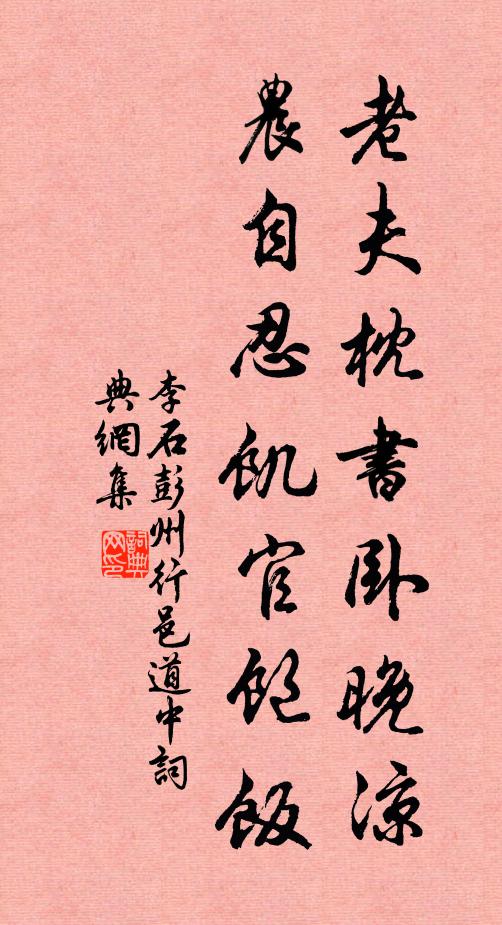 老夫枕書卧晚涼
農自忍飢官飽飯
李石彭州行邑道中詞
典網集
詞典網印